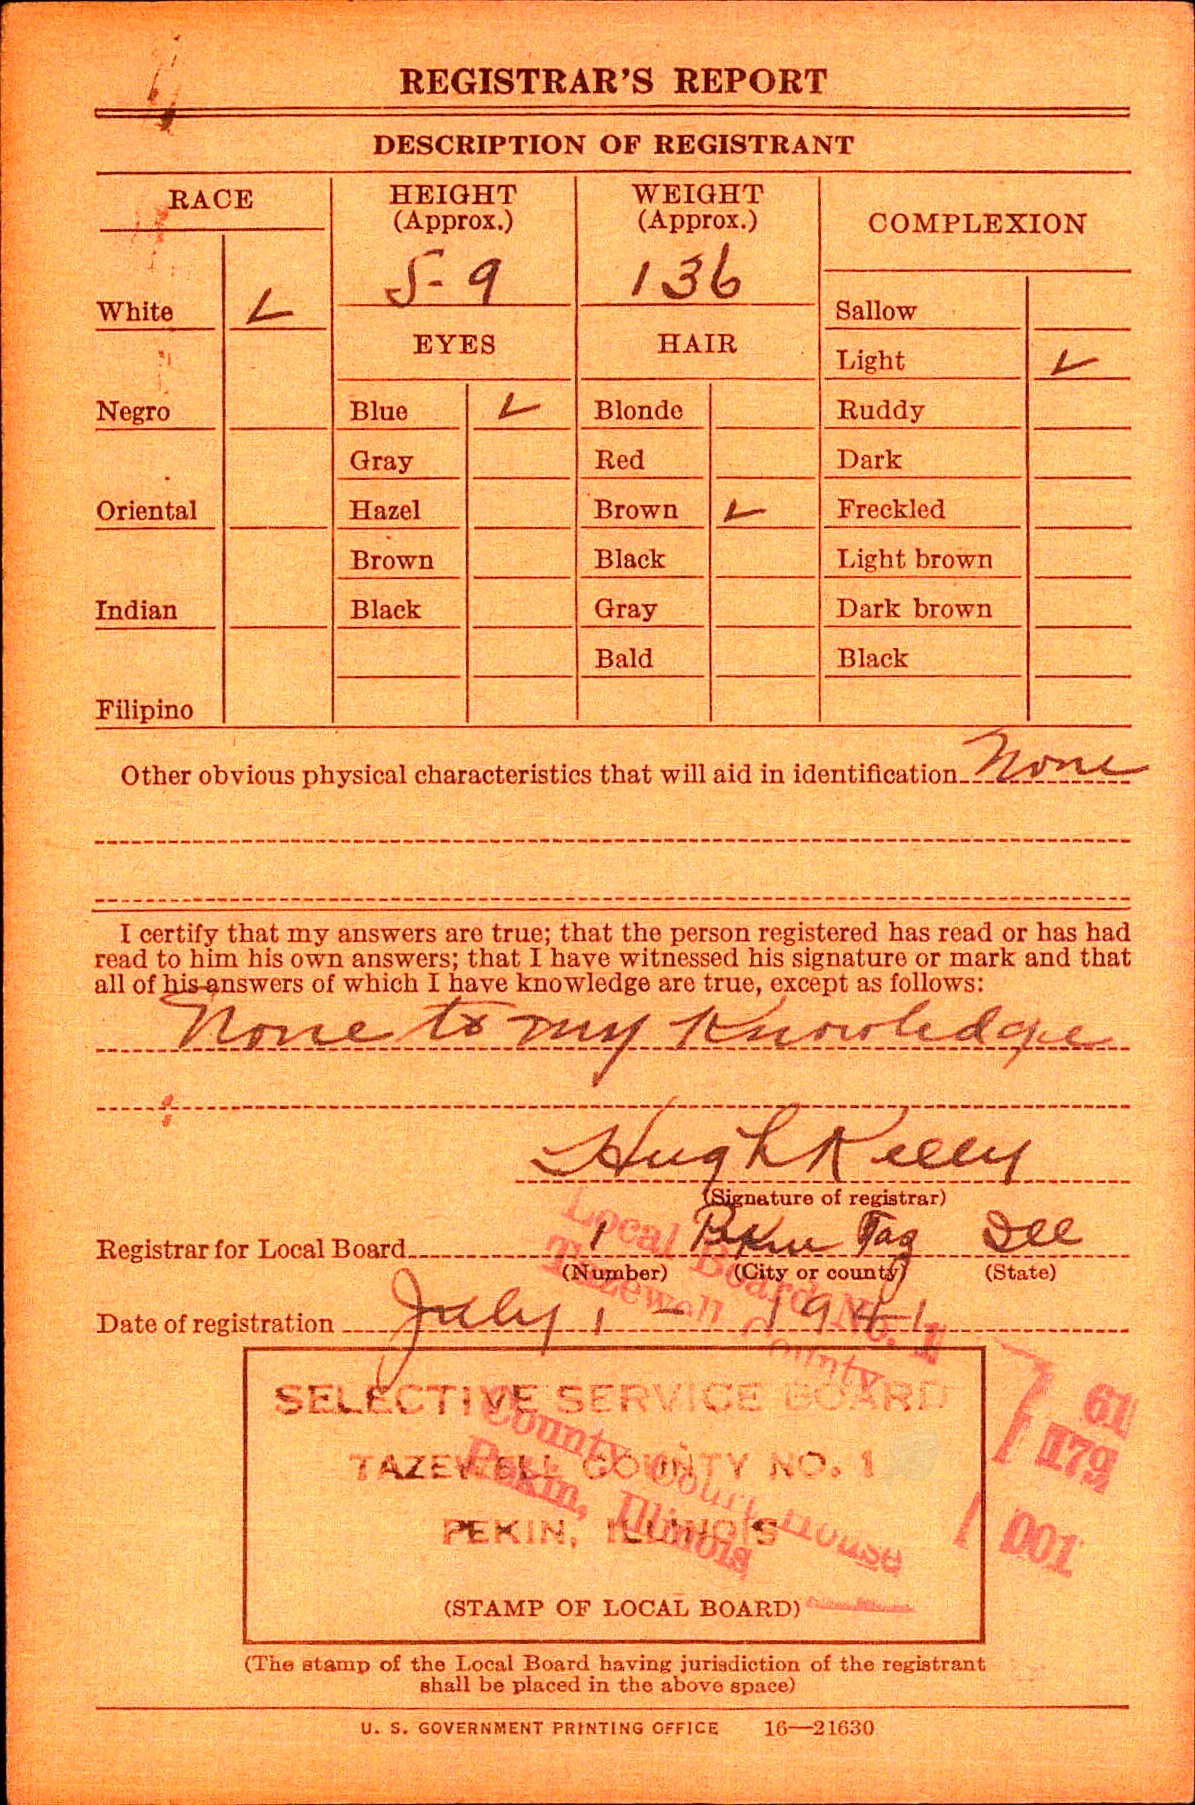 REGISTRAR'S REPORT
DESCRIPTION OF REGISTRANT
RACE
White ✓
Negro
Oriental
Indian
Filipino
HEIGHT
(Approx.)
5-9
EYES
Blue ✓
Gray
Hazel
Brown
Black
WEIGHT
(Approx.)
136
HAIR
Blonde
Red
Brown ✓
Black
Gray
Bald
COMPLEXION
Sallow
Light ✓
Ruddy
Dark
Freckled
Light brown
Dark brown
Black
Other obvious physical characteristics that will aid in identification None
I certify that my answers are true; that the person registered has read or has had
read to him his own answers; that I have witnessed his signature or mark and that
all of his answers of which I have knowledge are true, except as follows:
None to my Knowledge
Hugh Kelly
(Signature of registrar)
Registrar for Local Board 1 Pekin Taz Ill
(Number) (City or county) (State)
Date of registration July 1 - 1941
Local Board No. 1
Tazewell County
61
179
001
County Court House
Pekin, Illinois
SELECTIVE SERVICE BOARD
TAZEWELL COUNTY NO. 1
PEKIN, ILLINOIS
(STAMP OF LOCAL BOARD)
(The stamp of the Local Board having jurisdiction of the registrant
shall be placed in the above space)
U. S. GOVERNMENT PRINTING OFFICE 16—21630